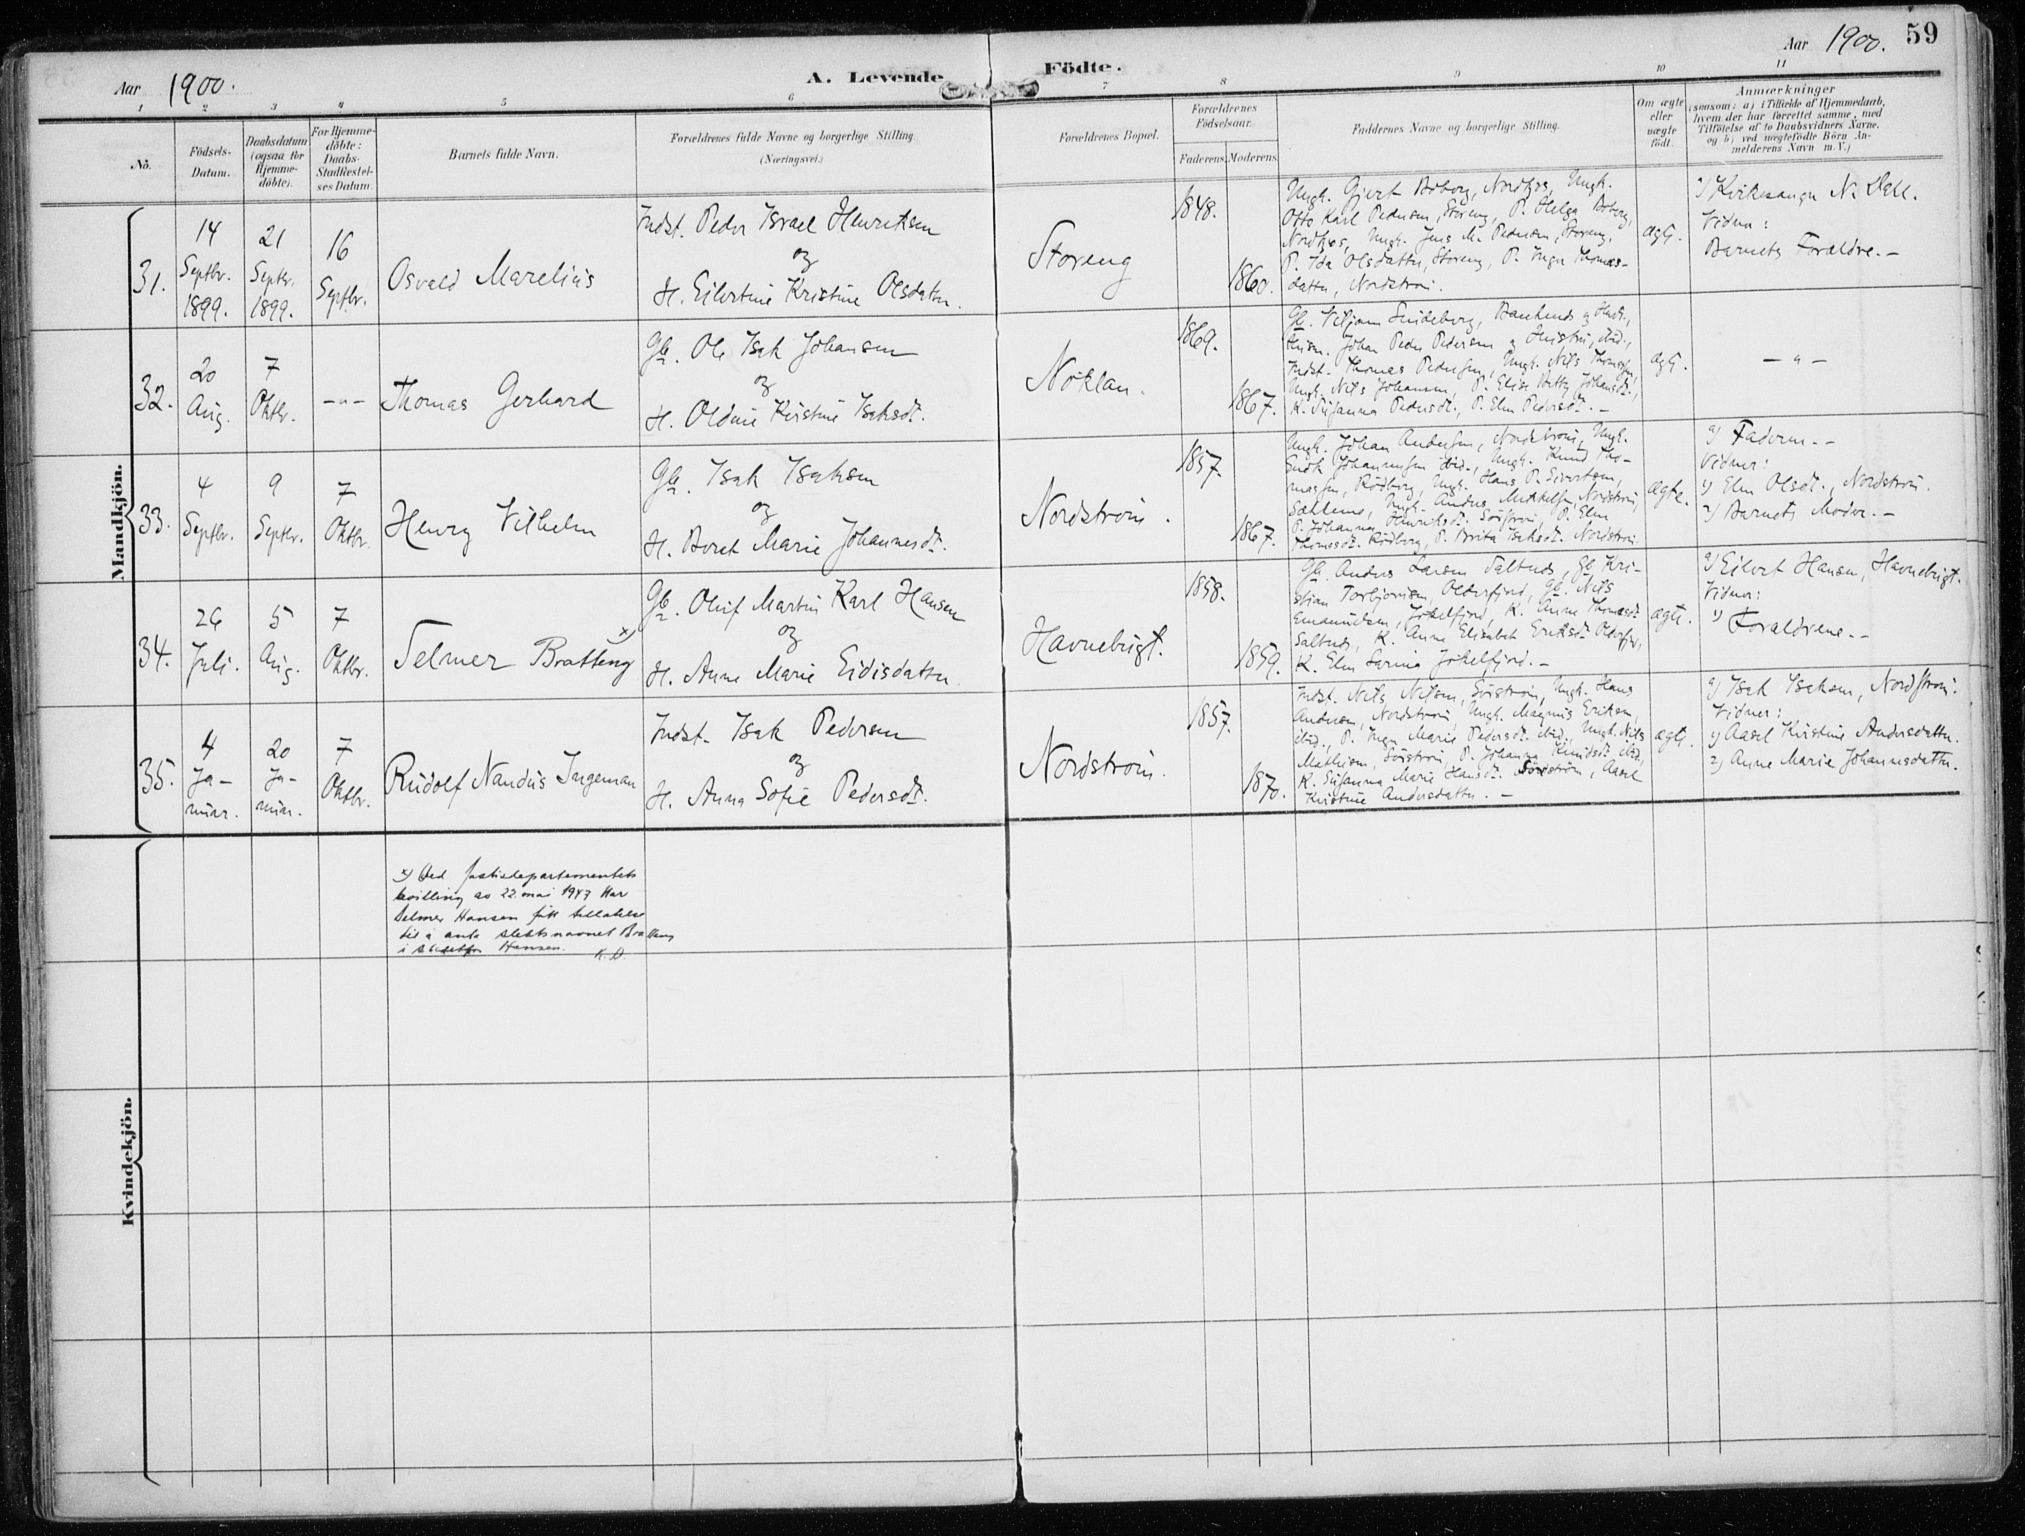 Aar 1900.
A. Levende Födte.
Aar 1900. 59
1 2 3 4 5 6 7 8 9 10 11
No.
Födsels-
Datum.
Daabsdatum
(ogsaa for
Hjemme-
döbte).
For Hjemme-
döbte:
Daabs-
Stadfæstel-
ses Datum.
Barnets fulde Navn.
Forældrenes fulde Navne og borgerlige Stilling.
(Næringsvei.)
Forældrenes Bopæl.
Forældrenes
Födselsaar.
Faderens. Moderens.
Faddernes Navne og borgerlige Stilling.
Om ægte
eller
uægte
født.
Anmærkninger
(saasom: a) i Tilfælde af Hjemmedaab,
hvem der har forrettet samme, med
Tilföielse af to Daabsvidners Navne.
og b) ved uægtefödte Börn An-
melderens Navn m. V.)
Mandkjön.
31.
14
Septbr.
1899.
21
Septbr.
1899.
16
Septbr.
Osvald Marelius
Indst. Peder Israel Henriksen
og
H. Eilertine Kristine Olsdatter.
Storeng
1848.
1860.
Ungk. Gjert Boberg, Nordkjos, Ungk.
Otto Karl Pedersen, Storeng, P. Helga Boberg,
Nordkjos, Ungk. Jens M. Pedersen, Storeng,
P. Ida Olsdatter, Storeng, P. Inga Thomas-
datter, Nordstrøm.
ægte.
a) Kirkesanger N. Dahl.
Vidner:
Barnets Forældre.-
32.
20
Aug.
7
Oktbr.
-"-
Thomas Gerhard
Gb. Ole Isak Johansen
og
H. Oldine Kristine Isaksdt.
Nøklan.
1869.
1867.
Johan Peder Pedersen
Indst. Thomas Pedersen, Ungk. Nils Thomasen,
Ungk. Nils Johansen, P. Elise Johansdt.,
K. Susanna Pedersdt., P. Elen Pedersdt.-
ægte.
-"-
33.
4
Septbr.
9
Septbr.
7
Oktbr.
Henry Vilhelm
Gb. Isak Isaksen
og
H. Beret Marie Johannesdt.
Nordstrøm.
1857.
1867.
Ungk. Johan Andersen, Nordstrøm, Ungk.
Johannesen ibid., Ungk. Knud Tho-
massen, Rødberg, Ungk. Hans P. Sivertsen,
Ungk. Anders Mikkelsen, Nordstrøm,
P. Johanna Henriksdt. Sørstrøm, P. Elen
Thomasdt. Rødberg, P. Berit Isaksdt. Nordstrøm.
ægte.
a) Faderen.-
Vidner:
1) Elen Olsdt., Nordstrøm.
2) Barnets Moder.-
34.
26
Juli.
5
Aug.
7
Oktbr.
Selmer Bratteng x)
Gb. Oluf Martin Karl Hansen
og
H. Anne Marie Eidisdatter.
Havnebugt.
1858.
1859.
Gb. Anders Larsen Saltnes, Gb. Kri-
stian Torbjørnsen, Olderfjord, Gb. Nils
Jøkelfjord, K. Anne Thomasdt.
Saltnes, K. Anne Elisabet Eriksdt. Olderfjor,
K. Elen Sarine Jøkelfjord.-
ægte.
a) Eilert Hansen, Havnebugt.
Vidner:
1) Forældrene.-
35.
4
Ja-
nuar.
20
Ja-
nuar.
7
Oktbr.
Rudolf Nandus Ingeman
Indst. Isak Pedersen
og
H. Anna Sofie Pedersdt.
Nordstrøm.
1857.
1870.
Indst. Nils Nilsen, Sørstrøm, Ungk. Hans
Andersen, Nordstrøm, Ungk. Magnus Eriksen,
ibid., P. Inga Marie Pedersdt. ibid., Ungk. Nils
Mathisen, Sørstrøm, P. Johanna Knudsdt. ibid.,
K. Susanna Marie Hansdt. Sørstrøm, Aasel
Kristine Andersdatter.-
ægte.
a) Isak Isaksen, Nordstrøm.
Vidner:
1) Aasel Kristine Andersdatter.
2) Anne Marie Johannesdatter.
Kvindekjön.
x) Ved Justisdepartementets
bevilling av 22. mai 1947 har
Selmer Hansen fått tillatelse
til å anta slektsnavnet Bratteng
i stedetfor Hansen. K.D.